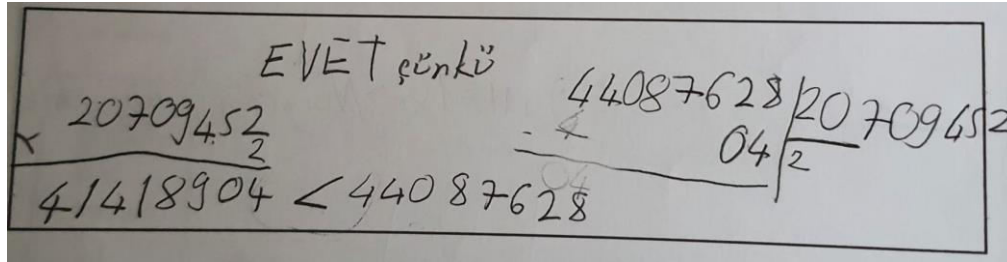 EVET çünkü
20709452
x 2
41418904 < 44087628
44087628 | 20709452
- 4 04 | 2
04